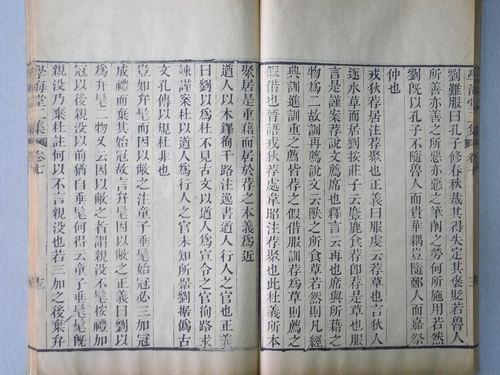 學海堂二集
劉難服曰孔子修春秋裁其得失定其褒貶若魯人
所善亦善之所惡亦惡之筆削之勞何所施用若然
劉旣以孔子不隨魯人而貴華耦豈隨鄭人而嘉祭
仲也
戎狄荐居注荐聚也正義曰服虔云荐草也言狄人
逐水草而居劉按莊子云麋鹿食荐卽荐是草也服
言是謹案荐說文薦席也釋言云再也席與所藉之
物爲二故訓再薦說文云獸之所食草若然則凡經
典訓進訓重之荐之假借服訓荐爲草則薦之
假借也晉語戎狄荐處韋昭注荐聚也此杜義所本
聚居是重藉而居於荐之本義爲近
遒人以木鐸徇于路注逸書遒人行人之官也正義
曰劉以爲杜不見古文以遒人爲宣令之官徇路求
諫謹案杜以遒人爲行人之官未知所劉據僞古
文孔傳以規杜非也
豈如弁髦而因以敝之注童子垂髦始冠必三加冠
成禮而棄其始冠故言弁髦因以敝之正義曰劉以
爲弁髦二物又云因以敝之者謂親没不髦按禮加
冠以後親没以前猶自垂髦何得云童子垂髦髦旣
親没乃棄杜註何以不言親没也若三加之後棄弁
學海堂二集 卷七 十三